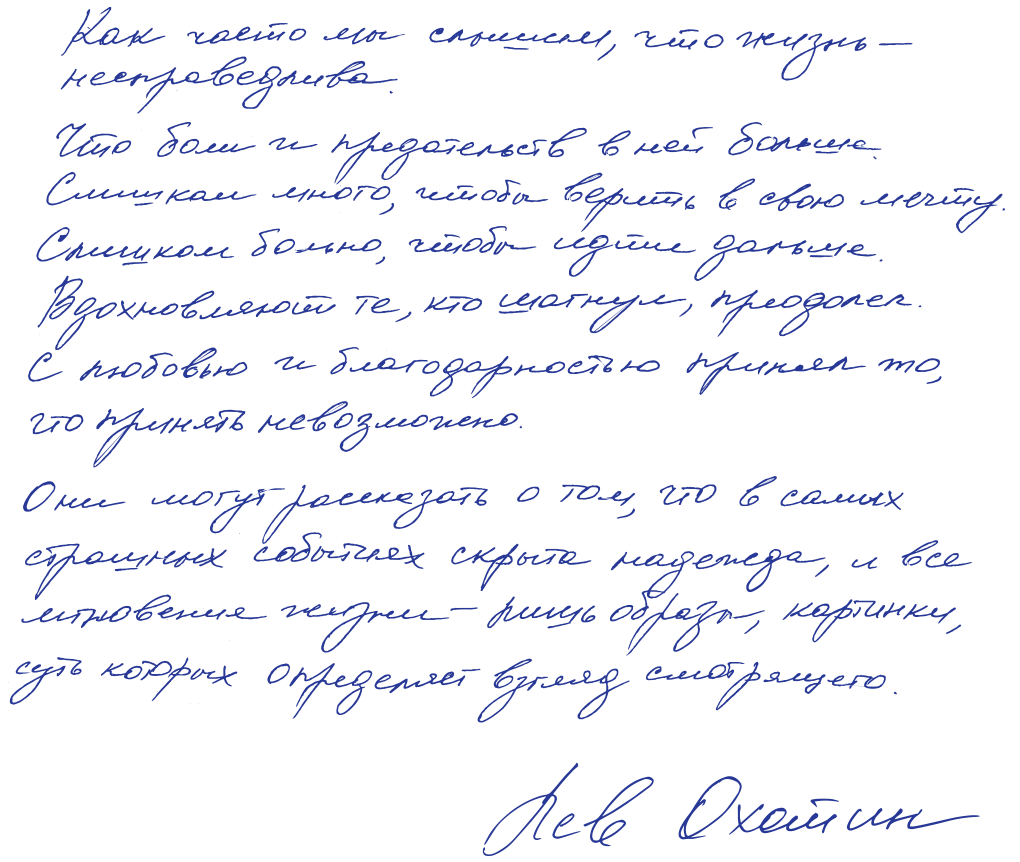 Как часто мы слышим, что жизнь –
несправедлива.
Что боли и предательств в ней больше.
Слишком много, чтобы верить в свою мечту.
Слишком больно, чтобы идти дальше.
Вдохновляют те, кто шагнул, преодолел.
С любовью и благодарностью принял то,
что принять невозможно.
Они могут рассказать о том, что в самых
страшных событиях скрыта надежда, и все
мгновения жизни – лишь образы, картинки,
суть которых определяет взгляд смотрящего.
Лев Охотин